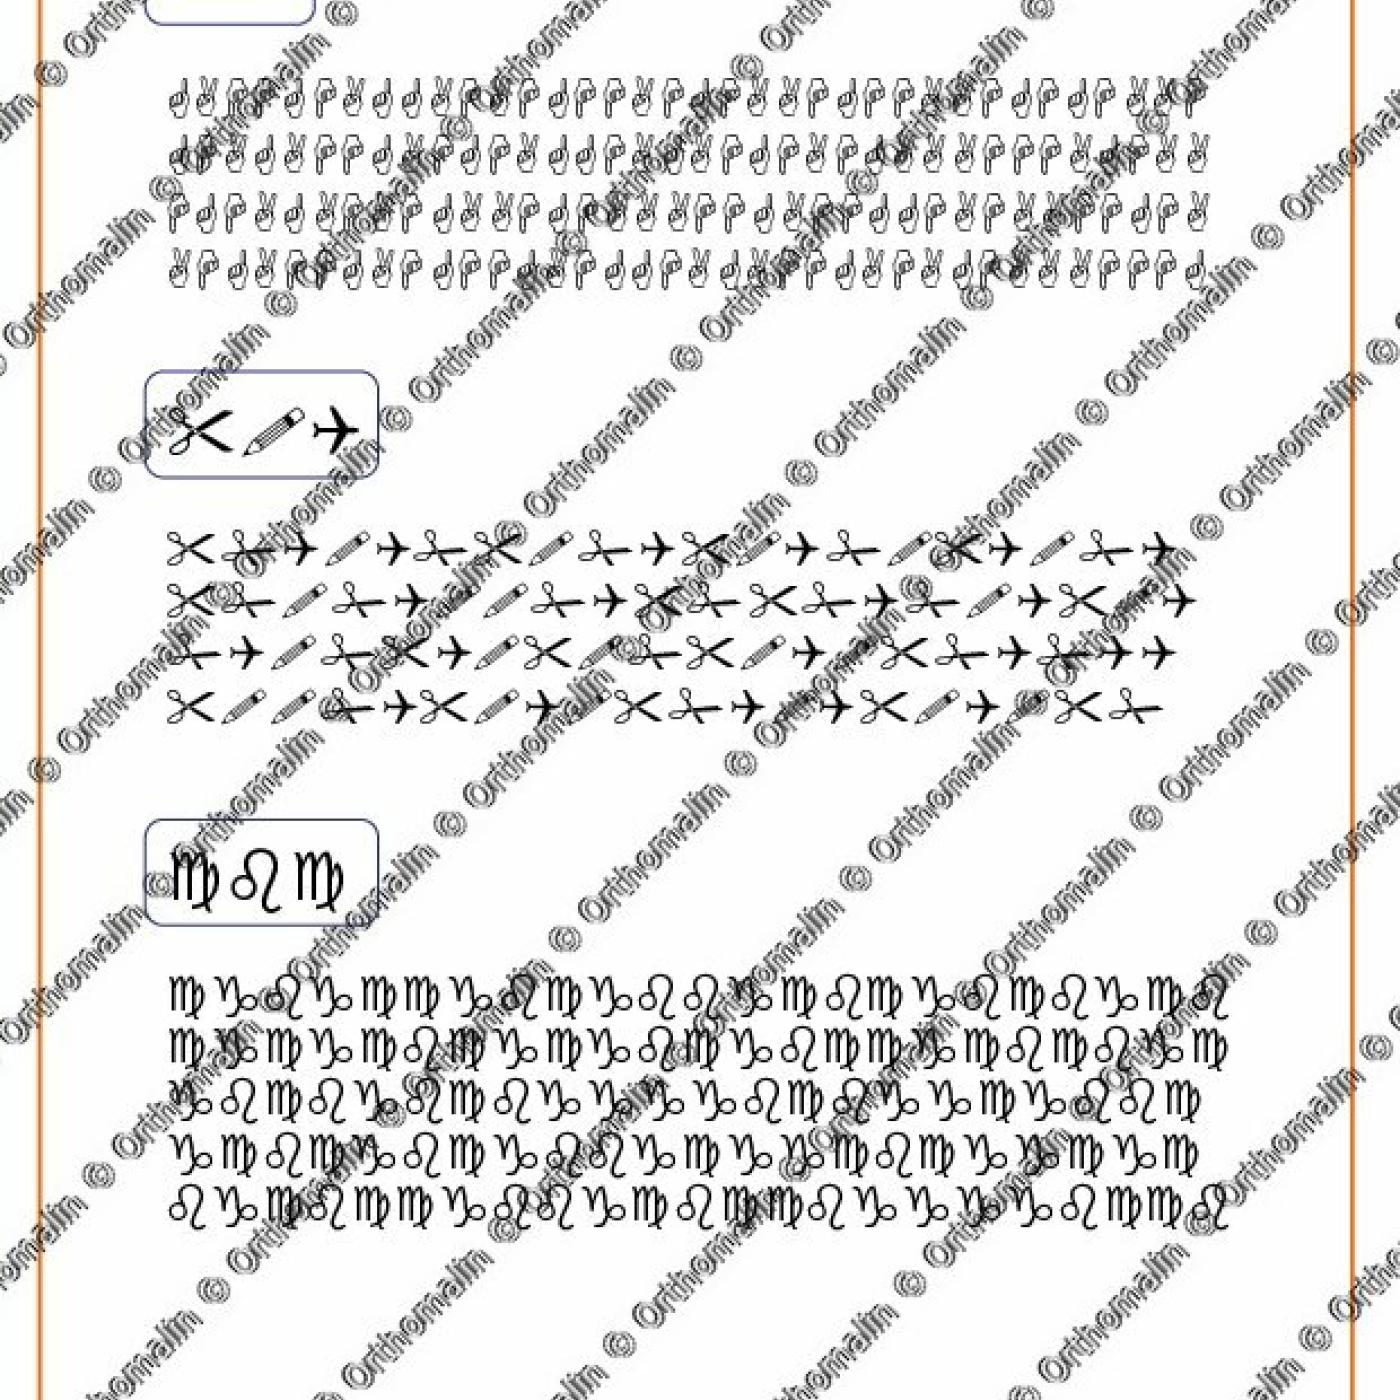 © Orthomalin